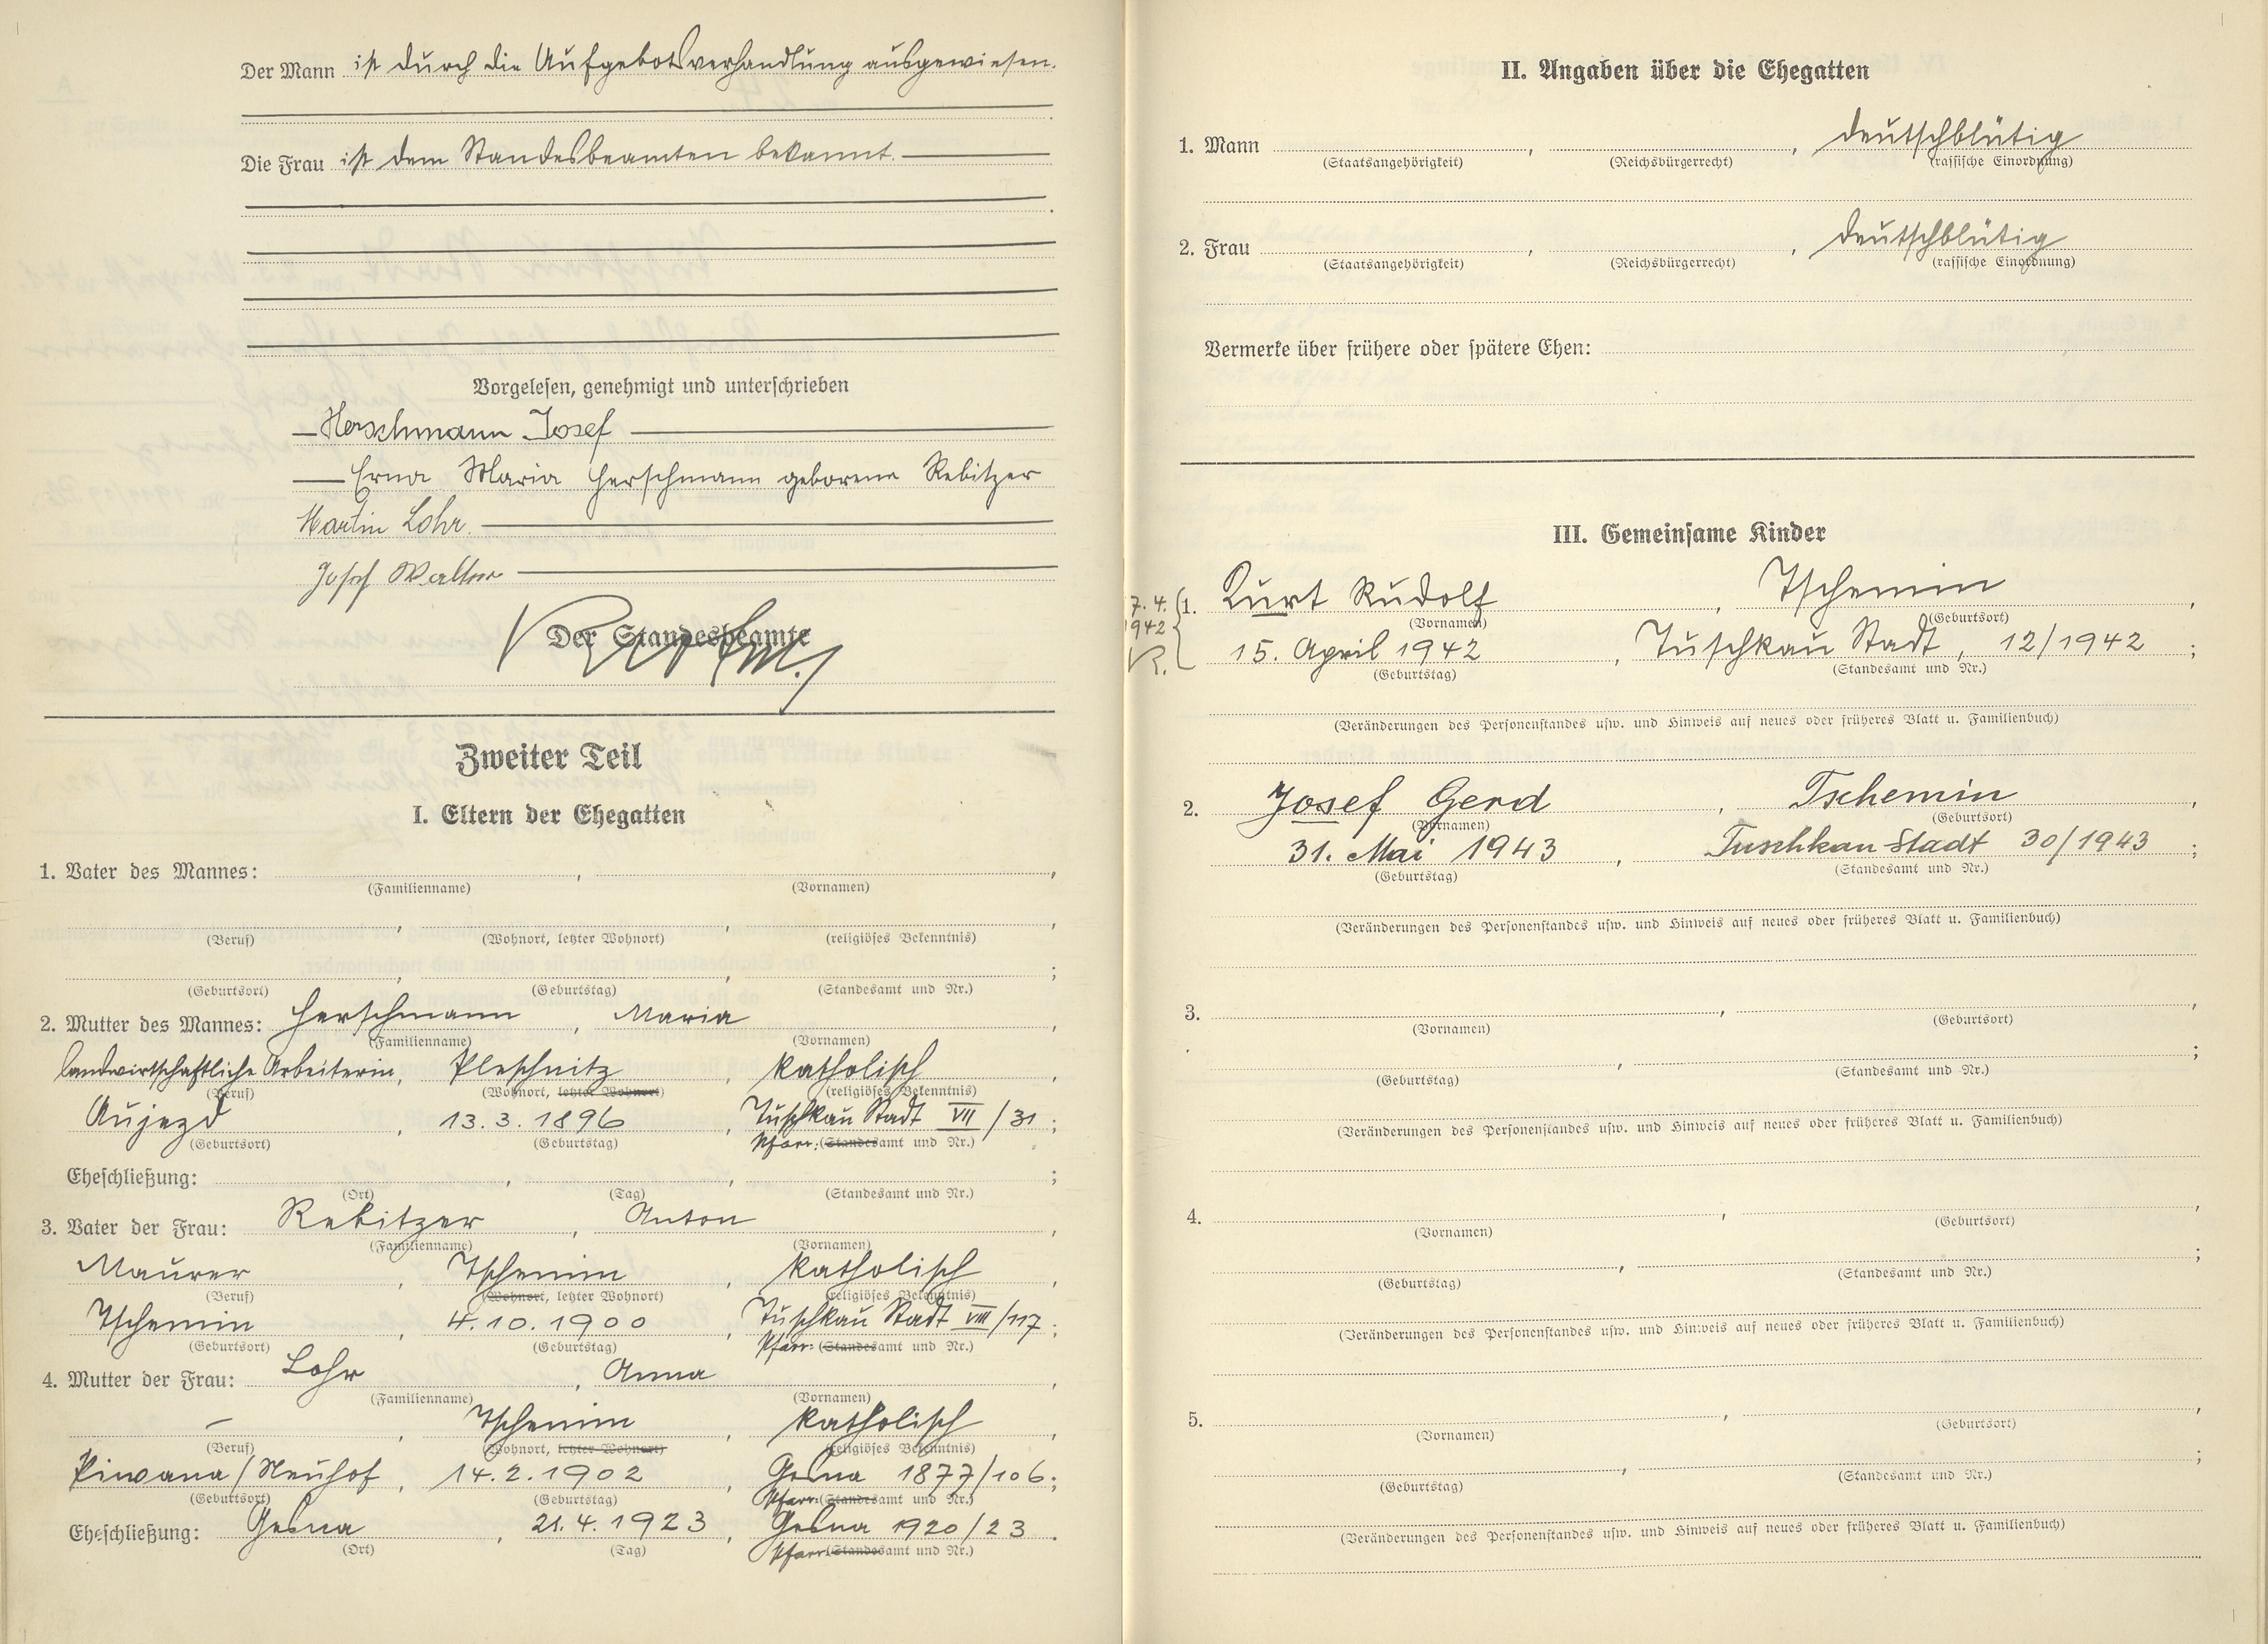 Der Mann ist durch die Aufgebotsverhandlung ausgewiesen.
Die Frau ist dem Standesbeamten bekannt.
Vorgelesen, genehmigt und unterschrieben
Herschmann Josef
Erna Maria Herschmann geborene Rebitzer
Martin Lohr.
Josef Walter
Der Standesbeamte
Zweiter Teil
I. Eltern der Ehegatten
1. Vater des Mannes: , ,
(Familienname) (Vornamen)
, , ,
(Beruf) (Wohnort, letzter Wohnort) (religiöses Bekenntnis)
, , ;
(Geburtsort) (Geburtstag) (Standesamt und Nr.)
2. Mutter des Mannes: Herschmann, Maria,
(Familienname) (Vornamen)
landwirtschaftliche Arbeiterin, Pleschnitz, katholisch,
(Beruf) (Wohnort, letzter Wohnort) (religiöses Bekenntnis)
Aujezd, 13.3.1896, Tuschkau Stadt VII/31;
(Geburtsort) (Geburtstag) Pfarr: (Standesamt und Nr.)
Eheschließung: , , ;
(Ort) (Tag) (Standesamt und Nr.)
3. Vater der Frau: Rebitzer, Anton,
(Familienname) (Vornamen)
Maurer, Tschemin, katholisch,
(Beruf) (Wohnort, letzter Wohnort) (religiöses Bekenntnis)
Tschemin, 4.10.1900, Tuschkau Stadt VIII/117;
(Geburtsort) (Geburtstag) Pfarr: (Standesamt und Nr.)
4. Mutter der Frau: Lohr, Anna,
(Familienname) (Vornamen)
–, Tschemin, katholisch,
(Beruf) (Wohnort, letzter Wohnort) (religiöses Bekenntnis)
Piwana/Neuhof, 14.2.1902, Gesna 1877/106;
(Geburtsort) (Geburtstag) Pfarr: (Standesamt und Nr.)
Eheschließung: Gesna, 21.4.1923, Gesna 1920/23.
(Ort) (Tag) Pfarr: (Standesamt und Nr.)
II. Angaben über die Ehegatten
1. Mann , , deutschblütig
(Staatsangehörigkeit) (Reichsbürgerrecht) (rassische Einordnung)
2. Frau , , deutschblütig
(Staatsangehörigkeit) (Reichsbürgerrecht) (rassische Einordnung)
Vermerke über frühere oder spätere Ehen:
III. Gemeinsame Kinder
7.4. 1. Kurt Rudolf, Tschemin,
1942 (Vornamen) (Geburtsort)
15. April 1942, Tuschkau Stadt, 12/1942;
(Geburtstag) (Standesamt und Nr.)
(Veränderungen des Personenstandes usw. und Hinweis auf neues oder früheres Blatt u. Familienbuch)
2. Josef Gerd, Tschemin,
(Vornamen) (Geburtsort)
31. Mai 1943, Tuschkau-Stadt 30/1943;
(Geburtstag) (Standesamt und Nr.)
(Veränderungen des Personenstandes usw. und Hinweis auf neues oder früheres Blatt u. Familienbuch)
3. , ,
(Vornamen) (Geburtsort)
, ;
(Geburtstag) (Standesamt und Nr.)
(Veränderungen des Personenstandes usw. und Hinweis auf neues oder früheres Blatt u. Familienbuch)
4. , ,
(Vornamen) (Geburtsort)
, ;
(Geburtstag) (Standesamt und Nr.)
(Veränderungen des Personenstandes usw. und Hinweis auf neues oder früheres Blatt u. Familienbuch)
5. , ,
(Vornamen) (Geburtsort)
, ;
(Geburtstag) (Standesamt und Nr.)
(Veränderungen des Personenstandes usw. und Hinweis auf neues oder früheres Blatt u. Familienbuch)